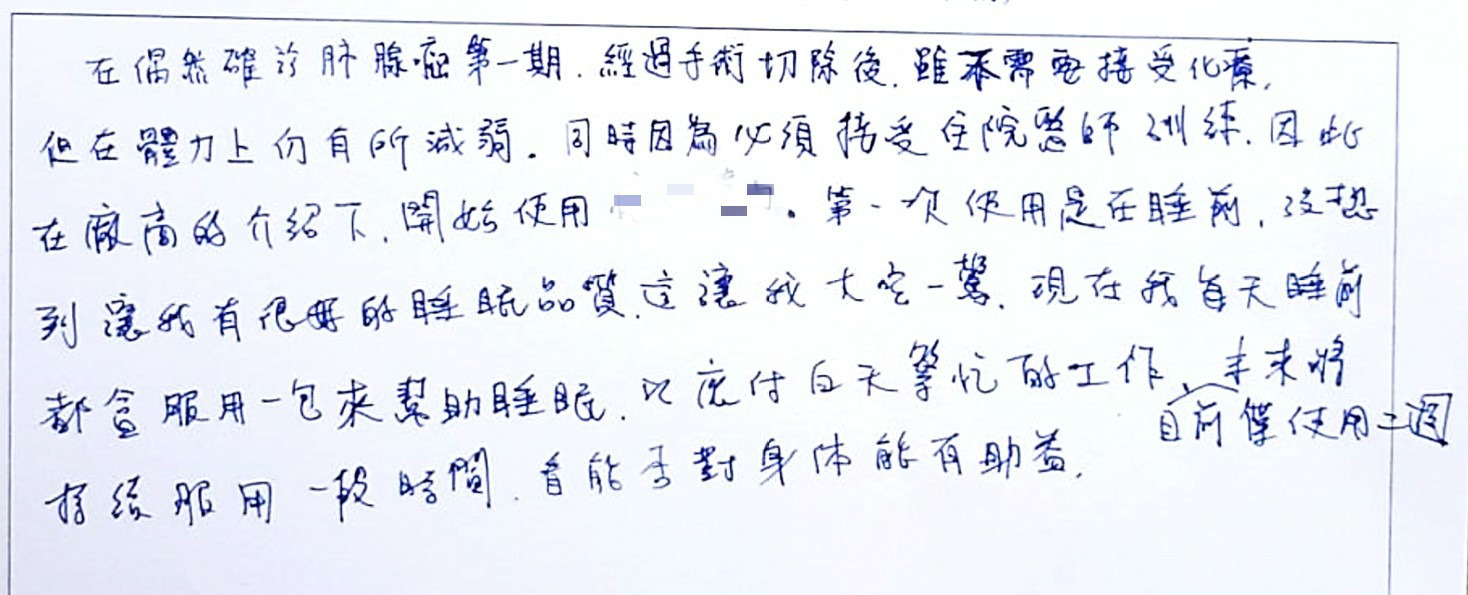 在偶然確診肺腺癌第一期，經過手術切除後，雖不需要接受化療，
但在體力上仍有所減弱。同時因為必須接受住院醫師訓練，因此
在廠商的介紹下，開始使用。第一次使用是在睡前，沒想
到讓我有很好的睡眠品質，這讓我大吃一驚，現在我每天睡前
都會服用一包來幫助睡眠，以應付白天繁忙的工作、未來將
目前僅使用二週
持續服用一段時間，看能否對身体能有助益。